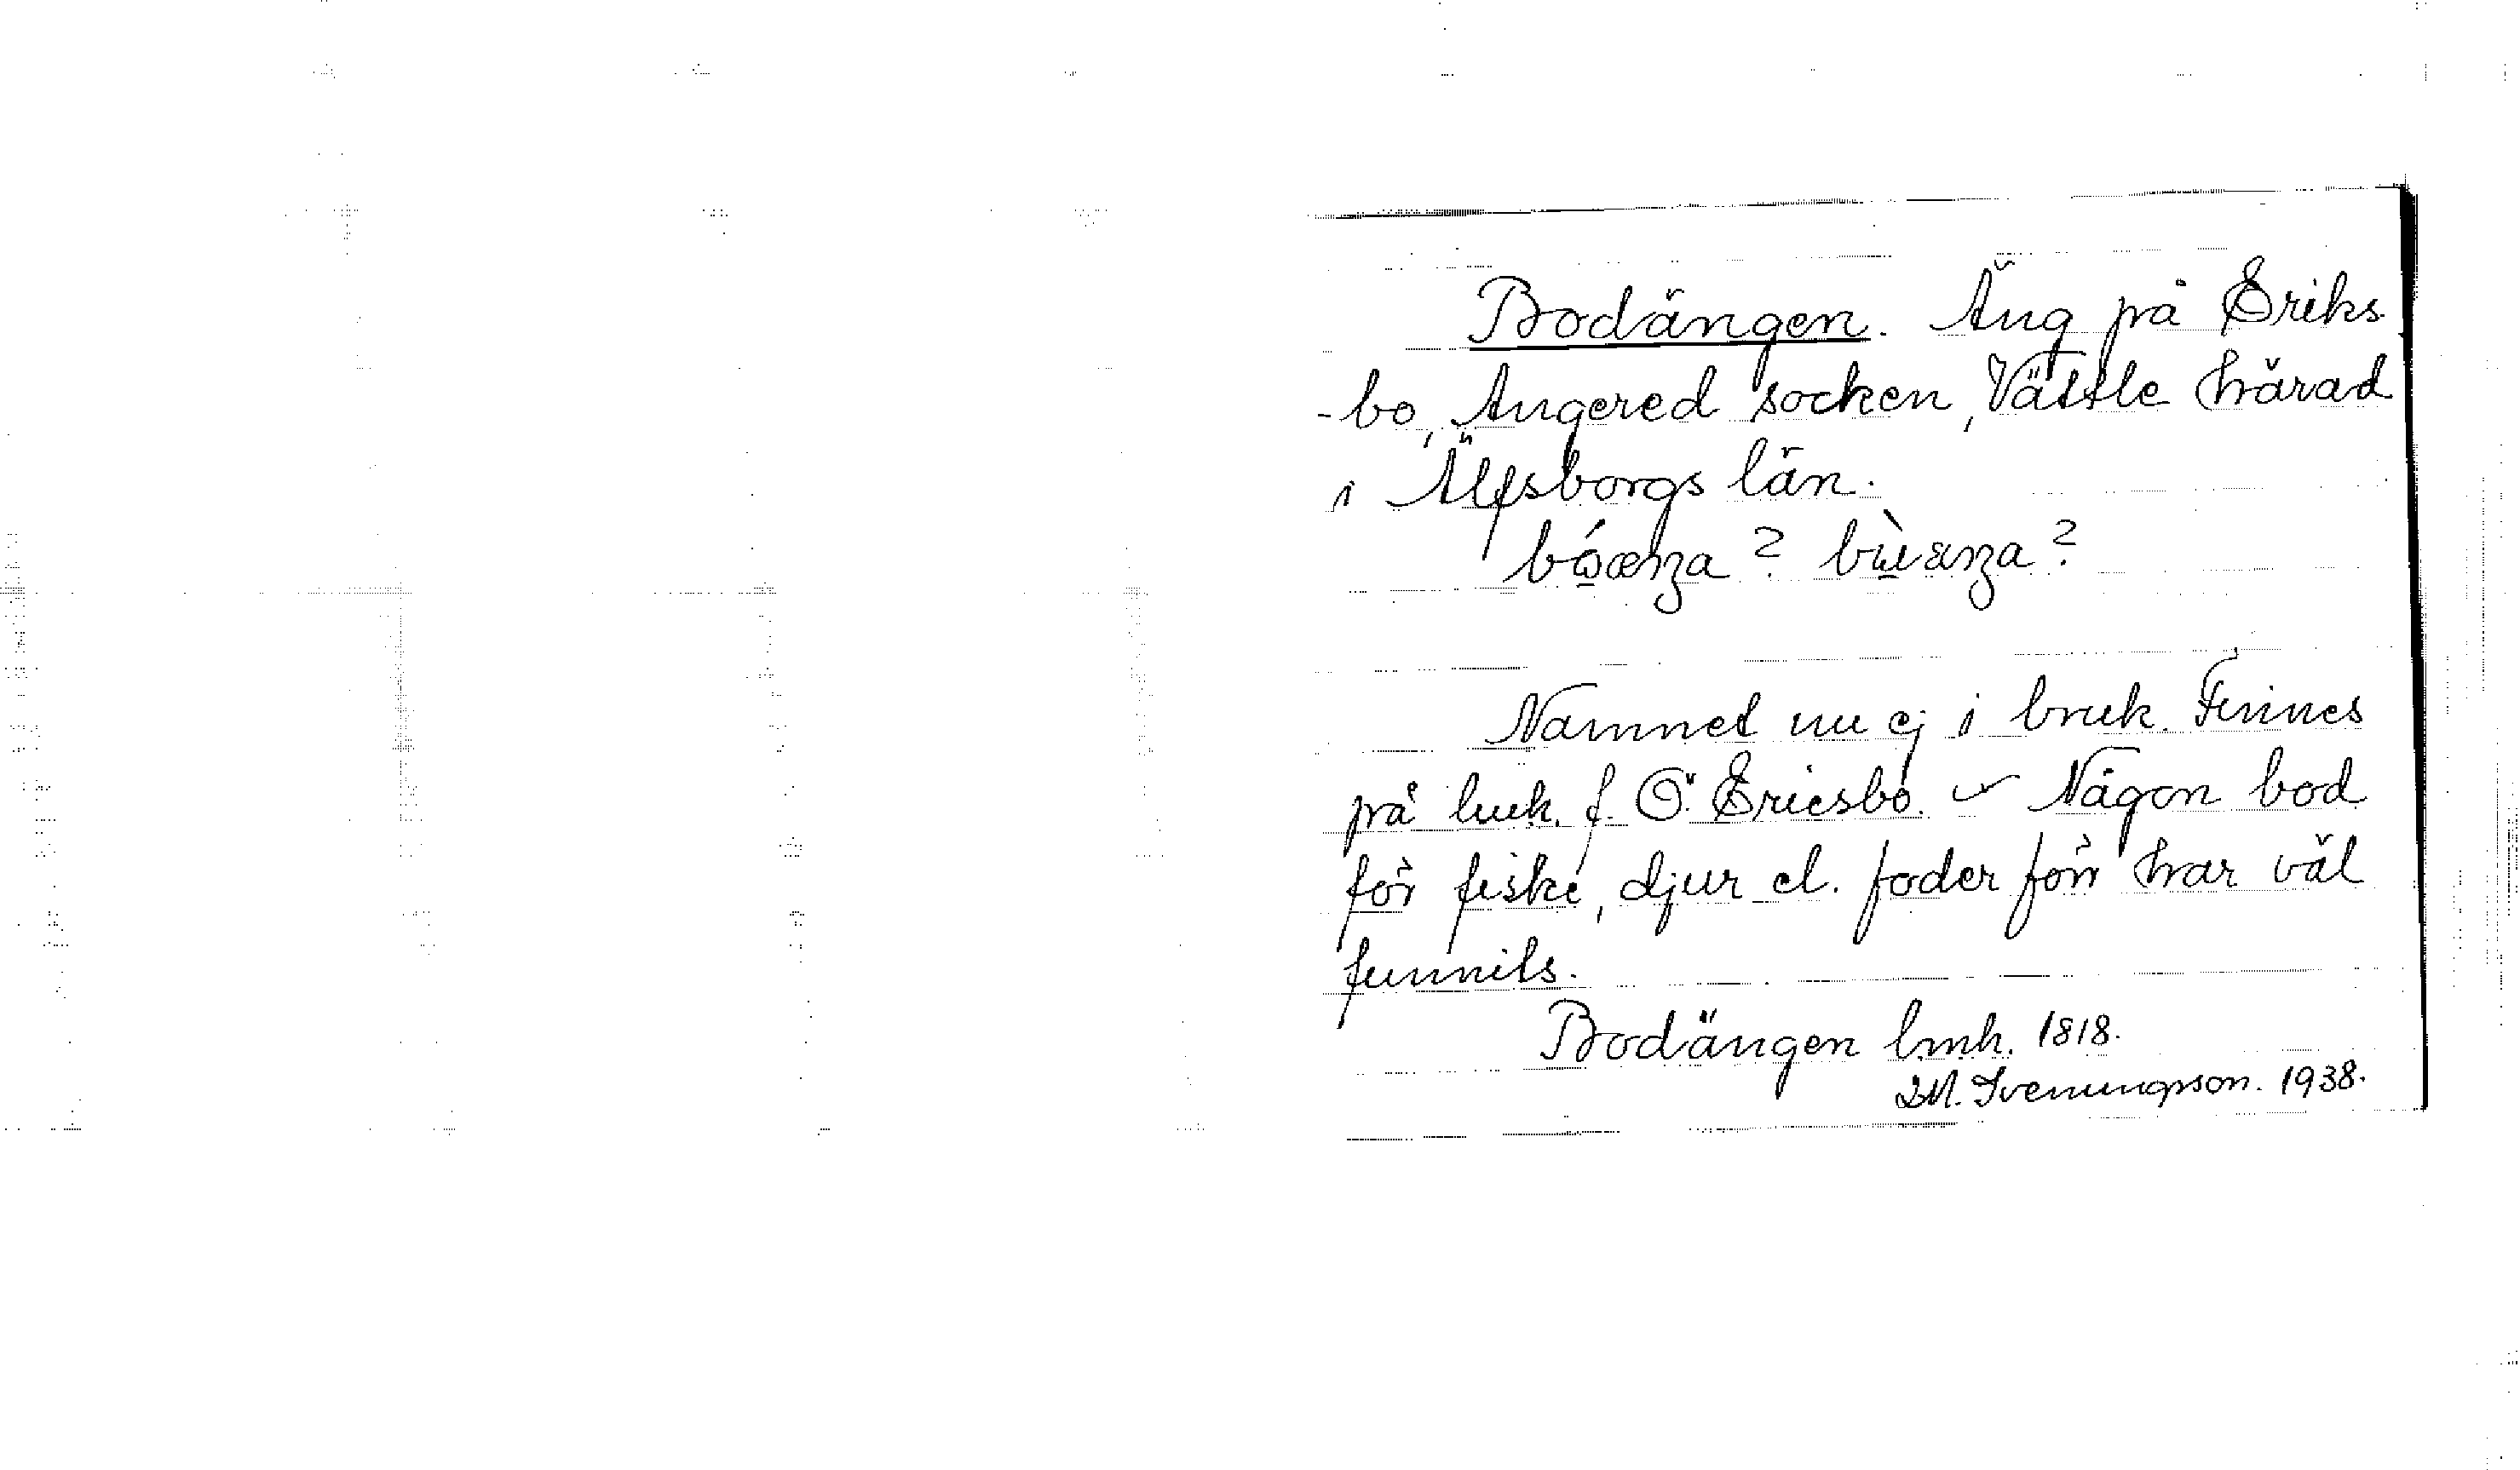 Bodängen. Äng på Eriks
-bo, Angered socken, Vättle härad
i Älfsborgs län.
Namnet nu ej i bruk. Finnes
på luk. f. Ö. Ericsbo. Någon bod
för fiske, djur el. foder förr har väl
funnits.
Bodängen lmk. 1818.
M. Svenungsson. 1938.